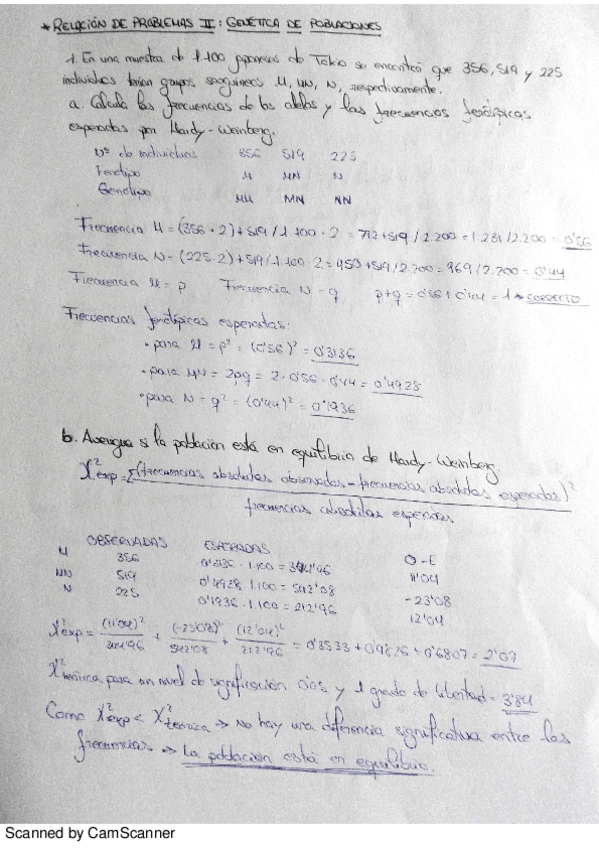 * RELACIÓN DE PROBLEMAS II: GENÉTICA DE POBLACIONES
1. En una muestra de 1.100 japoneses de Tokio se encontró que 356, 519 y 225
individuos tenían grupos sanguíneos M, MN, N, respectivamente.
a. Calcula las frecuencias de los alelos y las frecuencias fenotípicas
esperadas por Hardy-Weinberg.
Nº de individuos 356 519 225
Fenotipo M MN N
Genotipo MM MN NN
Frecuencia M = (356 · 2) + 519 / 1.100 · 2 = 712 + 519 / 2.200 = 1.231 / 2.200 = 0'56
Frecuencia N = (225 · 2) + 519 / 1.100 · 2 = 450 + 519 / 2.200 = 969 / 2.200 = 0'44
Frecuencia M = p Frecuencia N = q p+q = 0'56 + 0'44 = 1 → CORRECTO
Frecuencias fenotípicas esperadas:
• para M = p² = (0'56)² = 0'3136
• para MN = 2pq = 2 · 0'56 · 0'44 = 0'4928
• para N = q² = (0'44)² = 0'1936
b. Averigua si la población está en equilibrio de Hardy-Weinberg.
X²exp = Σ(frecuencias absolutas observadas - frecuencias absolutas esperadas)²
frecuencias absolutas esperadas
OBSERVADAS ESPERADAS O-E
M 356 0'3136 · 1.100 = 344'96 11'04
MN 519 0'4928 · 1.100 = 542'08 -23'08
N 225 0'1936 · 1.100 = 212'96 12'04
X²exp = (11'04)² / 344'96 + (-23'08)² / 542'08 + (12'04)² / 212'96 = 0'3533 + 0'9826 + 0'6807 = 2'07
X²teórica para un nivel de significación 0'05 y 1 grado de libertad = 3'84
Como X²exp < X²teórica → No hay una diferencia significativa entre las
frecuencias → La población está en equilibrio.
Scanned by CamScanner